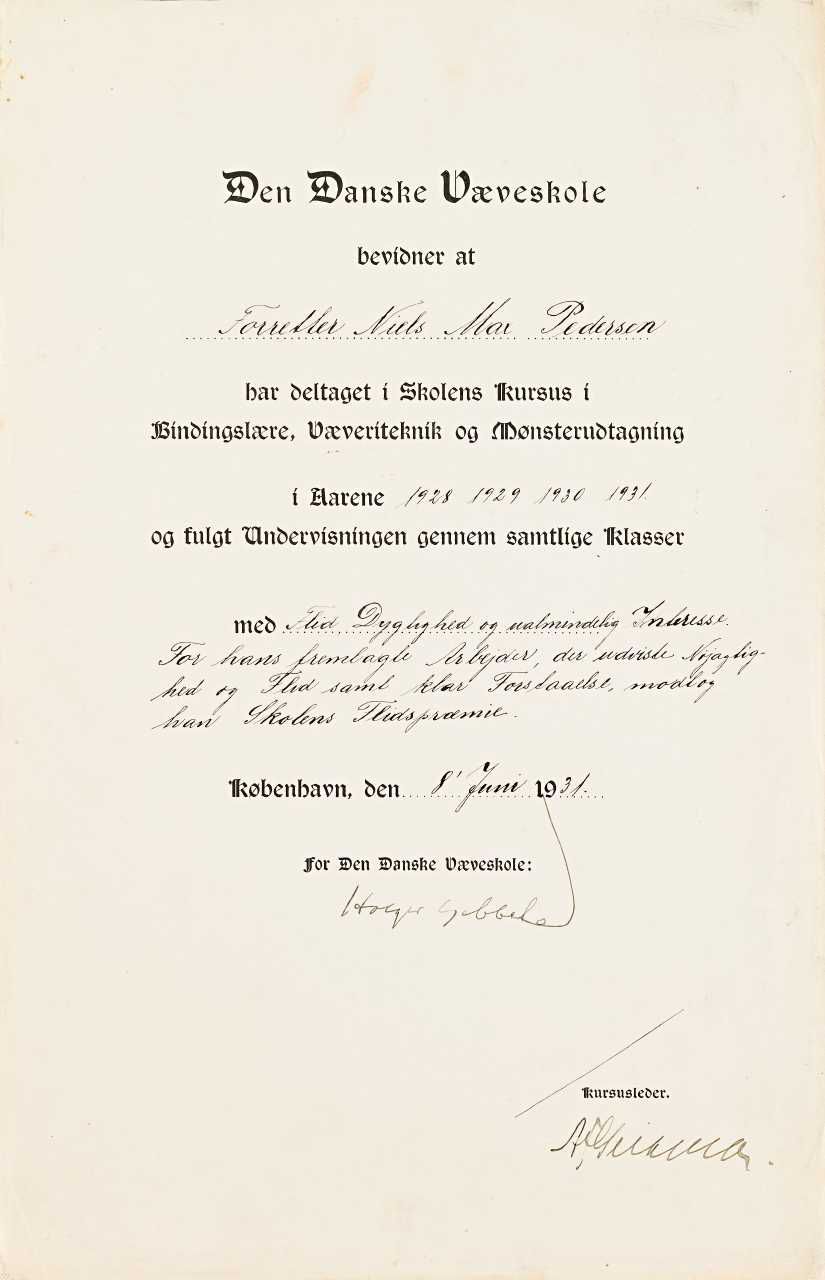 Den Danske Væveskole
bevidner at
Forretter Niels Max Pedersen
har deltaget i Skolens Kursus i
Bindingslære, Væveriteknik og Mønsterudtagning
i Aarene 1928 1929 1930 1931.
og fulgt Undervisningen gennem samtlige Klasser
med Flid, Dygtighed og ualmindelig Interesse.
For hans fremlagte Arbejder, der udviste Nøjagtig-
hed og Flid samt klar Forstaaelse, modtog
han Skolens Flidspræmie.
København, den 8' Juni 1931.
For Den Danske Væveskole:
Holger
Kursusleder.